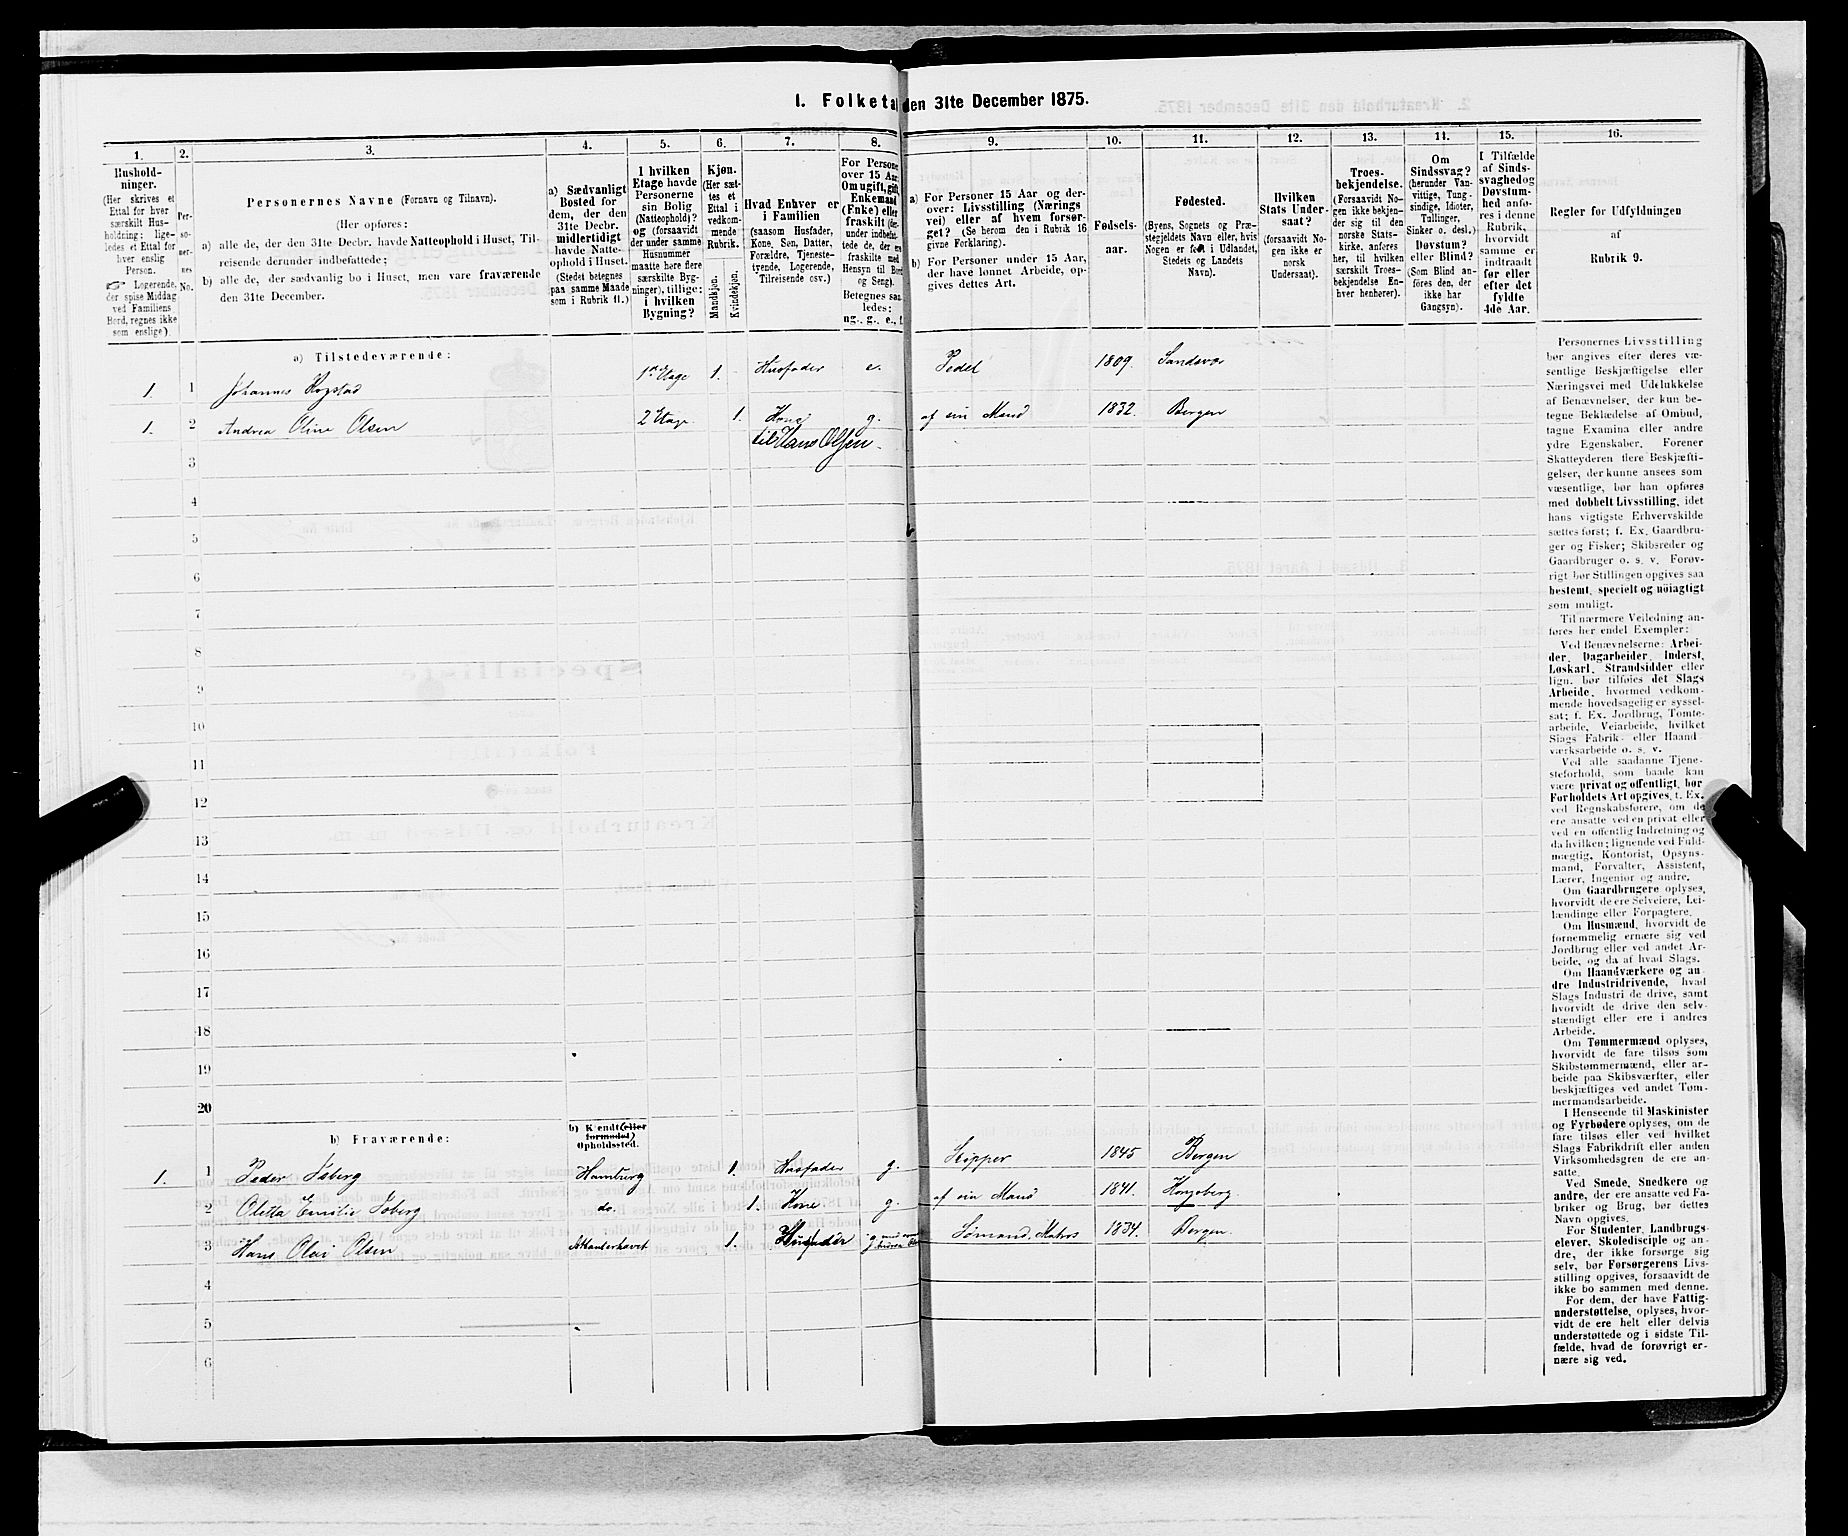 1. Folketal den 31te December 1875.
1. 2. 3. 4. 5. 6. 7. 8. 9. 10. 11. 12. 13. 14. 15. 16.
Hushold-
ninger.
(Her skrives et
Ettal for hver
særskilt Hus-
holdning: lige-
ledes et Ettal for
hver enslig
Person.
Logerende,
der spise Middag
ved Familiens
Bord, regnes ikke
som enslige).
Per-
so-
ner-
nes
No.
Personernes Navne (Fornavn og Tilnavn).
(Her opføres:
a) alle de, der den 31te Decbr. havde Natteophold i Huset, Til-
reisende derunder indbefattede;
b) alle de, der sædvanlig bo i Huset, men vare fraværende
den 31te December.
a) Sædvanligt
Bosted for
dem, der den
31te Decbr.
midlertidigt
havde Natte-
ophold i Huset.
(Stedet betegnes
paa samme Maade
som i Rubrik 11.)
I hvilken
Etage havde
Personerne
sin Bolig
(Natteophold)?
og (forsaavidt
der under samme
Husnummer
maatte høre flere
særskilte Byg-
ninger), tillige:
i hvilken
Bygning?
Kjøn.
(Her sæt-
tes et
Ettal i
vedkom-
mende
Rubrik.
Mandkjøn.
Kvindekjøn.
Hvad Enhver er
i Familien
(saasom Husfader,
Kone, Søn, Datter,
Forældre, Tjeneste-
tyende, Logerende,
Tilreisende osv.)
For Persone
over 15 Aar:
Om ugift, gift,
Enkemand
(Enke) eller
fraskilt (der-
under indbefat-
tede de, der ere
fraskilte med
Hensyn til Bord
og Seng).
Betegnes saa
ledes:
ug., g., e., f.
a) For Personer 15 Aar og der-
over: Livsstilling (Nærings
vei) eller af hvem forsør-
get? (Se berom den i Rubrik 16
givne Forklaring).
b) For Personer under 15 Aar,
der have lønnet Arbeide, op-
gives dettes Art.
Fødsels-
aar.
Fødested.
(Byens, Sognets og Præ-
stegjeldets Navn eller, hvis
Nogen er født i Udlandet,
Stedets og Landets
Navn).
Hvilken
Stats Under-
saat?
(forsaavidt No-
gen ikke er
norsk
Undersaat).
Troes-
bekjendelse.
(Forsaavidt No-
gen ikke bekjen-
der sig til den
norske Stats-
kirke, anføres
her, til hvilken
særskilt Troes-
bekjendelse En-
hver henhører).
Om
Sindssvag?
(herunder Van-
vittige, Tung-
sindige, Idioter,
Tullinger,
Sinker o. desl.)
Døvstum?
eller Blind?
(Som Blind an-
føres den, der
ikke har
Gangsyn).
I Tilfælde
af Sinds-
svaghed og
Døvstum-
hed anfø-
res i denne
Rubrik,
hvorvidt
samme er
indtraadt
før eller
efter det
fyldte
4de Aar.
Regler for Udfyldningen
af
Rubrik 9.
a) Tilstedeværende:
1. 1 Johannes Rogstad 1ste Etage 1. Husfader e. Pedel 1809. Sandsvær
1. 2 Andrea Oline Olsen 2 Etage 1. Kone g. af sin Mand 1832. Bergen
til Hans Olsen
3
4
5
6
7
8
9
10
11
12
13
14
15
16
17
18
19
20
b) Fraværende:
b) Kjendt (eller
formodet)
Opholdssted.
1. 1 Peder Søberg Hamburg 1. Husfader g. Skipper 1845 Bergen
2 Oletta Emilie Søberg do. 1. Kone g. af sin Mand 1841. Kongsberg.
3 Hans Olai Olsen Atlanterhavet 1. Husfader g. Sømand, Matros 1834. Bergen.
4
5
6
Personernes Livsstilling
bør angives efter deres væ-
sentlige Beskjæftigelse eller
Næringsvei med Udelukkelse
af Benævnelser, der kun be-
tegne Beklædelse af Ombud,
tagne Examina eller andre
ydre Egenskaber. Forener
Skatteyderen flere Beskjæfti-
gelser, der kunne ansees som
væsentlige, bør han opføres
med dobbelt Livsstilling, idet
hans vigtigste Erhvervskilde
sættes først; f. Ex. Gaardbru-
ger og Fisker; Skibsreder og
Gaardbruger o. s. v. Forøv-
rigt bør Stillingen opgives saa
bestemt, specielt og nöiagtigt
som muligt.
Til nærmere Veiledning an-
føres her endel Exempler:
Ved Benævnelserne: Arbei-
der, Dagarbeider, Inderst,
Løskarl, Strandsidder eller
lign. bør tilføies det Slags
Arbeide, hvormed vedkom-
mende hovedsagelig er syssel-
sat; f. Ex. Jordbrug, Tomte-
arbeide, Veiarbeide, hvilket
Slags Fabrik- eller Haand
værksarbeide o. s. v.
Ved alle saadanne Tjene-
steforhold, som baade kan
være privat og offentligt, bør
Forholdets Art opgives, f. Ex.
ved Regnskabsførere, om de
ere ansatte ved en privat eller
ved en offentlig Indretning og
da hvilken; lignende ved Fuld-
mægtig, Kontorist, Opsyns-
mand, Forvalter, Assistent,
Lærer, Ingeniør og andre.
Om Gaardbrugere oplyses,
hvorvidt de ere Selveiere, Lei-
lændinge eller Forpagtere.
Om Husmænd, hvorvidt de
fornemmelig ernære sig ved
Jordbrug eller ved andet Ar-
beide, og da af hvad Slags.
Om Haandværkere og an-
dre Industridrivende, hvad
Slags Industri de drive, samt
hvorvidt de drive den selv-
stændigt eller ere i andres
Arbeide.
Om Tømmermænd oplyses,
hvorvidt de fare tilsøs som
Skibstømmermænd, eller ar-
beide paa Skibsværfter, eller
beskjæftiges ved andet Tøm-
mermandsarbeide.
I Henseende til Maskinister
og Fyrbødere oplyses, om de
fare tilsøs eller ved hvilket
Slags Fabrikdrift eller anden
Virksomhedsgren de ere an-
satte.
Ved Smede, Snedkere og
andre, der ere ansatte ved Fa-
briker og Brug, bør dettes
Navn opgives.
For Studenter, Landbrugs-
elever, Skoledisciple og an-
dre, der ikke forsørge sig
selv, bør Forsørgerens Livs-
stilling opgives, forsaavidt de
ikke bo sammen med denne.
For dem, der have Fattig-
understøttelse, oplyses, hvor-
vidt de ere helt eller delvis
understøttede og i sidste Til-
fælde, hvad de forøvrigt er-
nære sig ved.